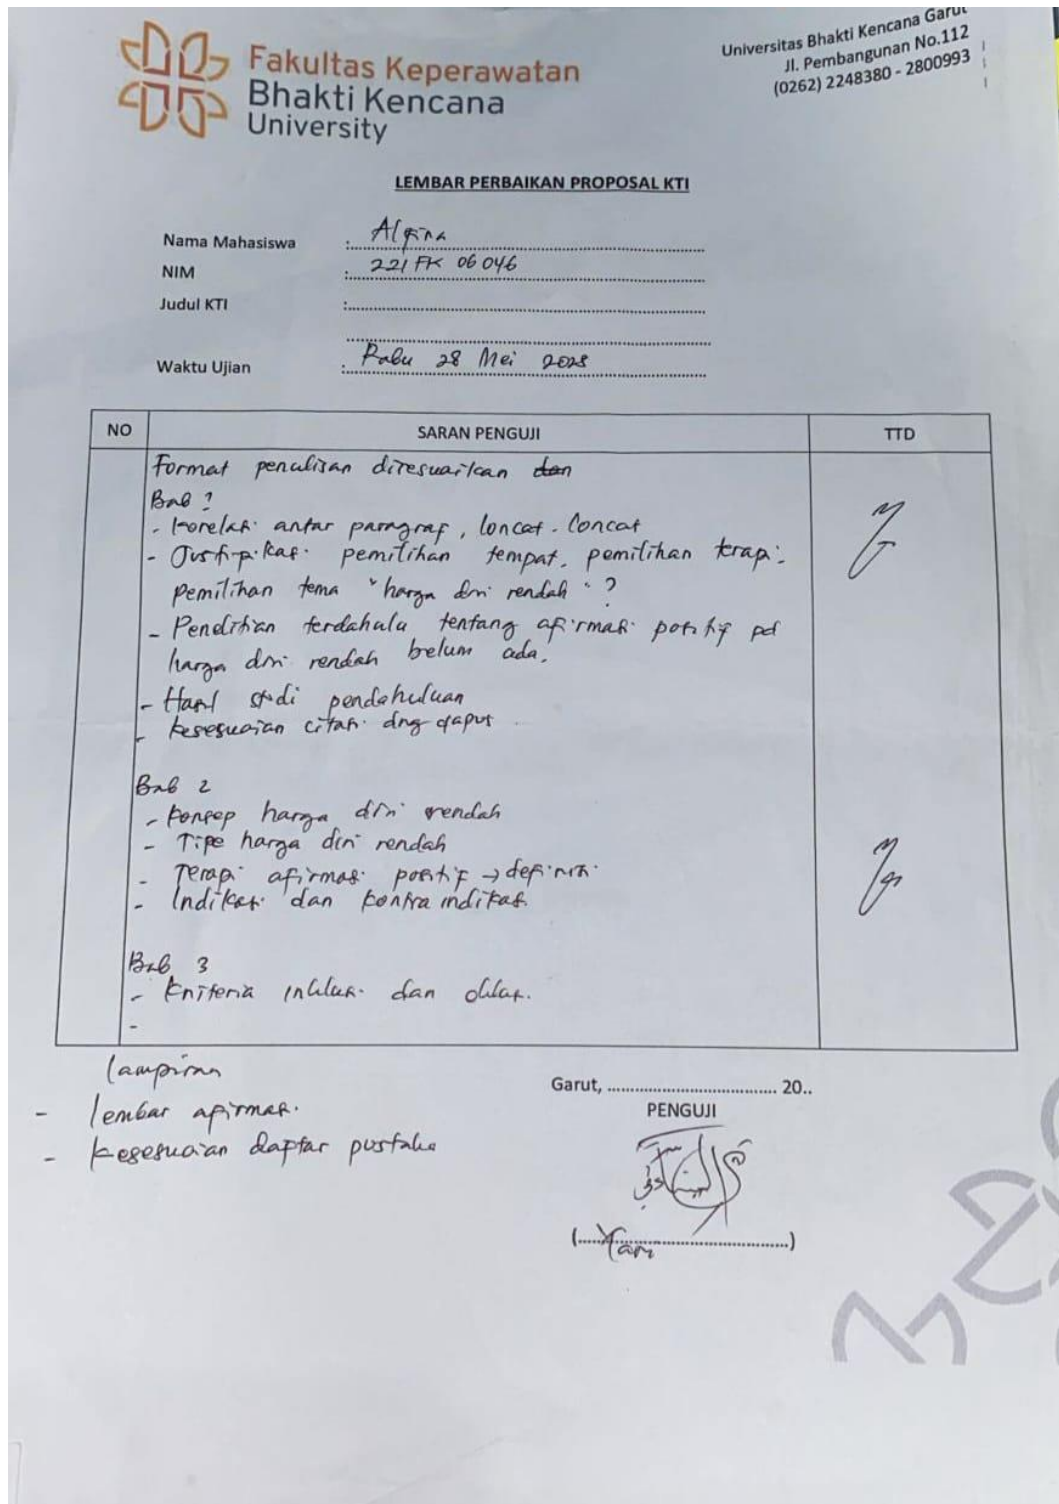 Fakultas Keperawatan
Bhakti Kencana
University
Universitas Bhakti Kencana Garut
Jl. Pembangunan No.112
(0262) 2248380 - 2800993
LEMBAR PERBAIKAN PROPOSAL KTI
Nama Mahasiswa : Algina
NIM : 221 FK 06 046
Judul KTI :
Waktu Ujian : Rabu 28 Mei 2025
NO SARAN PENGUJI TTD
Format penulisan disesuaikan dan
Bab 1
- Korelasi antar paragraf, loncat-loncat
- Justifikasi pemilihan tempat, pemilihan terapi
pemilihan tema "harga diri rendah" ?
- Penelitian terdahulu tentang afirmasi positif pd
harga diri rendah belum ada.
- Hasil studi pendahuluan
- kesesuaian citasi dng dapus
Bab 2
- Konsep harga diri rendah
- Tipe harga diri rendah
- Terapi afirmasi positif → definisi
- Indikasi dan kontra indikasi
Bab 3
- Kriteria inklusi dan
-
lampiran
- lembar afirmasi
- kesesuaian daftar pustaka
Garut, ........................ 20..
PENGUJI
(.....Yani........................)